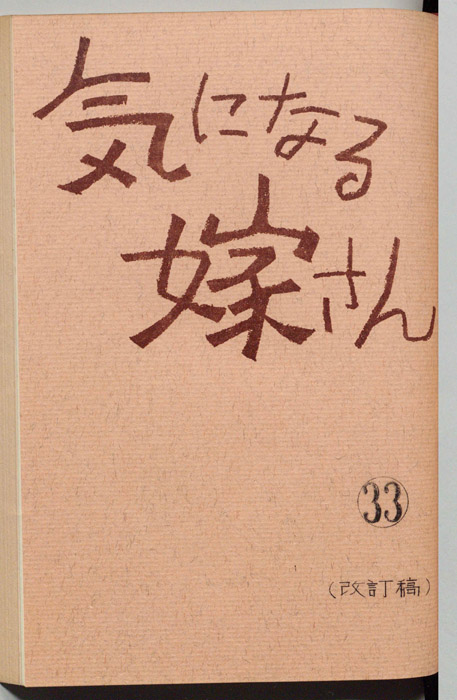 気になる
嫁さん
33
(改訂稿)